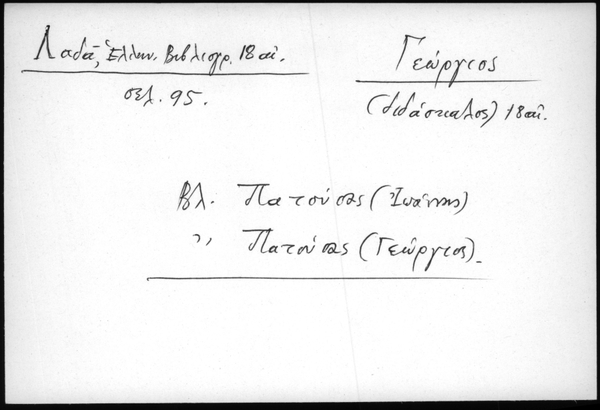 Λαδᾶ, Ἑλλην. Βιβλιογρ. 18 αἰ.
σελ. 95.
Γεώργιος
(διδάσκαλος) 18 αἰ.
Βλ. Πατούσας (Ἰωάννης)
〃 Πατούσας (Γεώργιος).